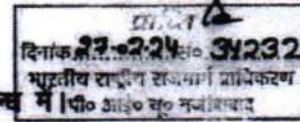 प्राप्ति
दिनांक 27-02-24 सं० 34232
भारतीय राष्ट्रीय राजमार्ग प्राधिकरण
में।पी० आई० यू० नजीबाबाद